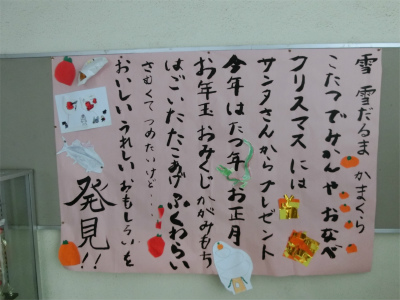 雪 雪だるま かまくら
こたつでみかんや おなべ
クリスマスには
サンタさんからプレゼント
今年はたつ年 お正月
お年玉 おみくじ かがみもち
はごいた たこあげ ふくわらい
さむくて つめたいけど・・・
おいしい うれしい おもしろいを
発見!!